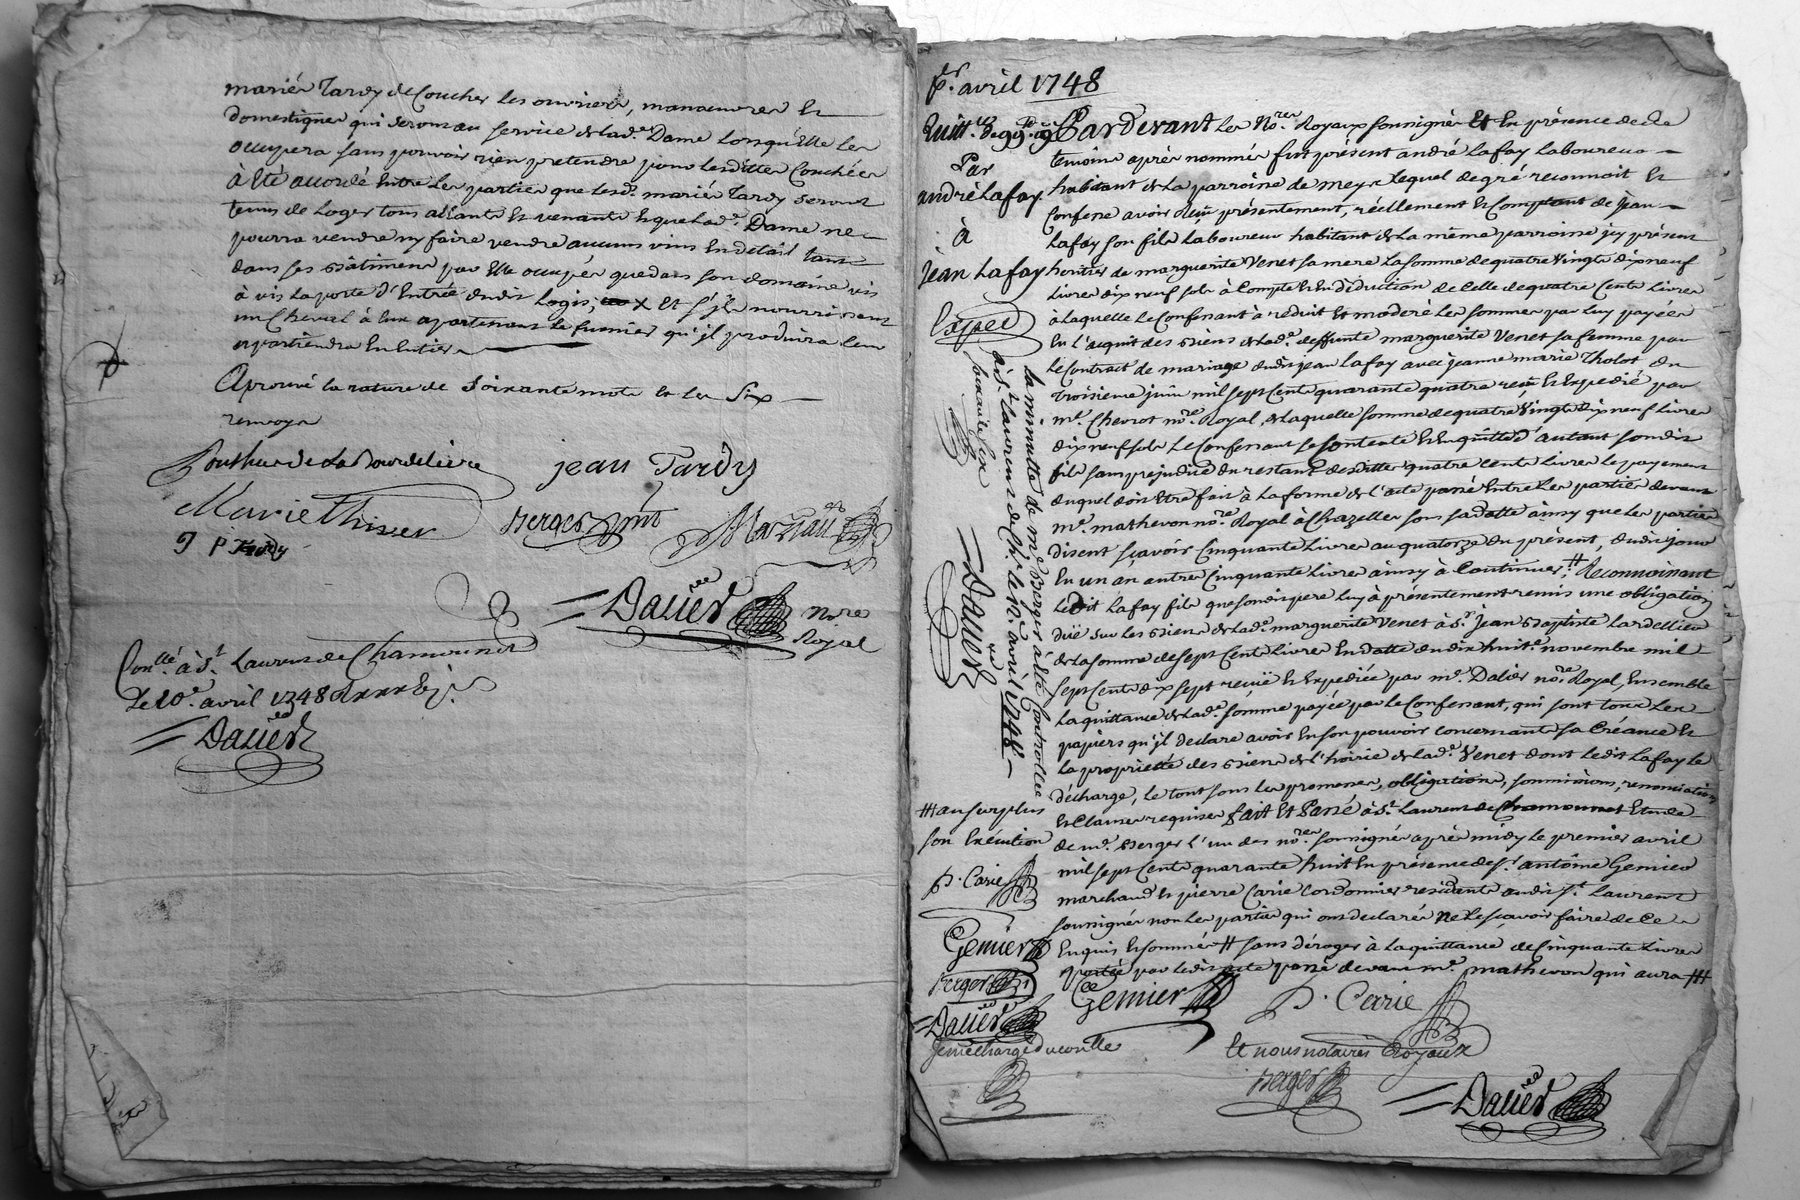 mariés Tardy de Coucher les ouvriers, manoeuvres et
domestiques qui seront au service de lad.e Dame Lorsqu'Elle les
occupera sans pouvoir rien pretendre pour lesdittes Couchées
à Eté accordé Entre les parties que lesd. mariés Tardy seront
tenus de Loger tous allants et venants Et que lad.e Dame ne
pourra vendre ny faire vendre aucuns vins En detail tant
dans ses Batiments par Elle occupés que dans son domaine vis
à vis La porte d'Entrée dudit Logis, x Et s'jls nourrissent
un Cheval à Eux apartenant Le fumier qu'jl produira leur
apartiendra En Entier
Aprouvé la rature de Soixante mots et les Six
renvoys
Ponthus de La Bourdeliere
jean Tardy
Marie Thiver
Berger
J P Tardy
Dalier no.re
Royal
Con.llé à S.t Laurent de Chamousset
Le 10.e avril 1748
Dalier
p.er avril 1748
Quitt.ce de 99# 19s
Par
andré Lafay
à
jean Lafay
Expedié
Pardevant Les No.res Royaux soussignés Et En présence des
temoins après nommés fut présent andré Lafay Laboureur
habitant de La parroisse de meys Lequel de gré reconnoit Et
Confesse avoir Reçu présentement, réellement Et Comptant de jean
Lafay son fils Laboureur habitant de La même parroisse jcy présent
heritier de marguerite Venet sa mere La somme de quatre Vingts dix neuf
Livres dix neuf sols à Compte Et En déduction de Celle de quatre Cents Livres
à Laquelle Le Confessant à réduit Et moderé Les sommes par Luy payées
En L'acquit des Biens de lad.e deffunte marguerite Venet sa femme par
Le Contract de mariage dudit jean Lafay avec jeanne marie Tholot du
troisieme juin mil sept Cents quarante quatre reçu Et Expedié par
m.e Chevrot no.re Royal, de Laquelle somme de quatre Vingts dix neuf Livres
dix neuf sols Le Confessant se Contente Et En quitte d'autant sondit
fils sans prejudice du restant desdittes quatre cents Livres Le payement
duquel doit Etre fait à La forme de L'acte passé Entre Les parties devant
m.e mathevon no.re Royal à Chazelles sous sa datte ainsy que Les parties
disent sçavoir Cinquante Livres au quatorze du présent, dudit jour
En un an autres Cinquante Livres ainsy à Continuer; # Reconnoissant
Ledit Lafay fils que sondit pere Luy à présentement remis une obligation
düe sur les Biens de lad.e marguerite Venet à S.r jean Baptiste Lardellier
de La somme de sept Cents Livres En datte du dix huit.e novembre mil
sept Cents dix sept reçüe Et Expediée par m.e Dalier no.re Royal, Ensemble
La quittance de lad.e somme payée par Le Confessant, qui sont tous Les
papiers qu'jl declare avoir En son pouvoir Concernants sa Créance Et
La propriété des Biens de L'hoirie de lad.e Venet dont Ledit Lafay Le
décharge, Le tout sous Les promesses, obligations, soumissions, renonciations
Et Clauses requises fait Et Passé à S.t Laurent de Chamousset Etude
de m.e Berger L'un des no.res soussignés après midy Le premier avril
mil sept Cents quarante huit En présence de S.r antoine Genier
marchand Et pierre Carie Cordonnier residents audit S.t Laurent
soussignés non Les parties qui ont declarés ne Le sçavoir faire de Ce
Enquis Et sommés # sans déroger à La quittance de Cinquante Livres
portée par Ledit acte passé devant m.e mathevon qui aura ##
## au surplus
son Exécution
P. Carie
Genier
Berger
Dalier
La minutte de m.e Berger à Eté Controllée
à S.t Laurent de Ch. le avril 1748
Dalier
Genier
P. Carie
Et nous notaires Royaux
Berger
Dalier